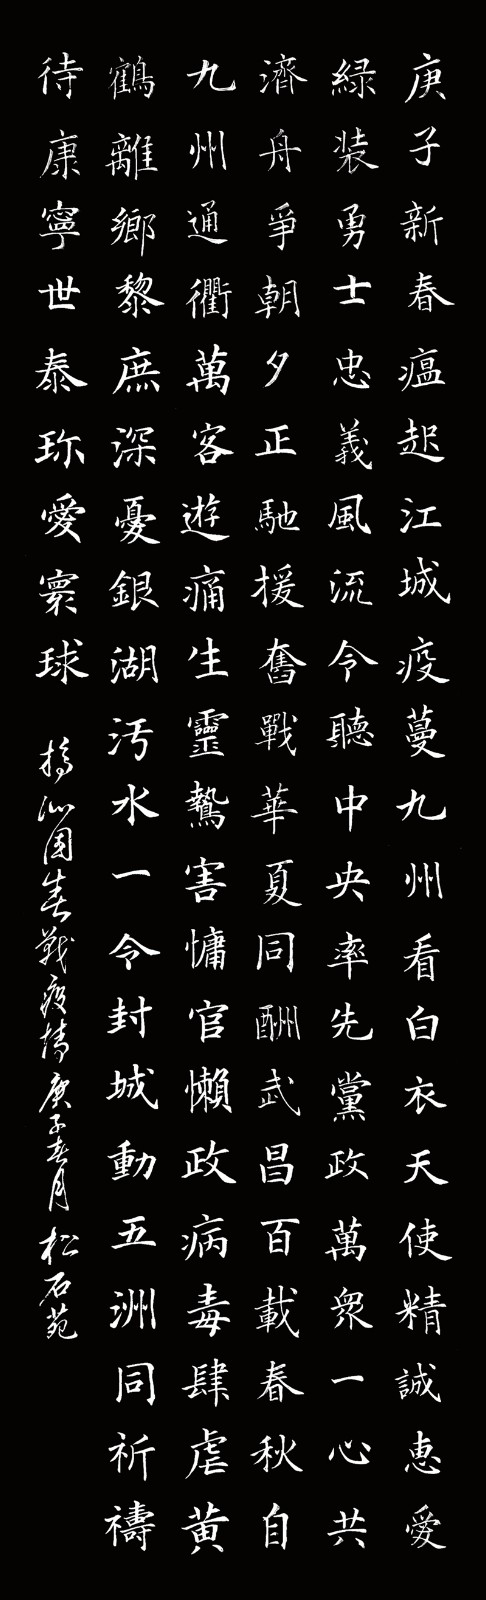 庚子新春瘟起江城疫蔓九州看白衣天使精誠惠愛
緑装勇士忠義風流令聽中央率先黨政萬衆一心共
濟舟爭朝夕正馳援奮戰華夏同酬武昌百載春秋自
九州通衢萬客遊痛生靈鷙害慵官懶政病毒肆虐黄
鶴離鄉黎庶深憂銀湖汚水一令封城動五洲同祈禱
待康寧世泰珎愛寰球
沁園春戰疫情庚子春月松石苑